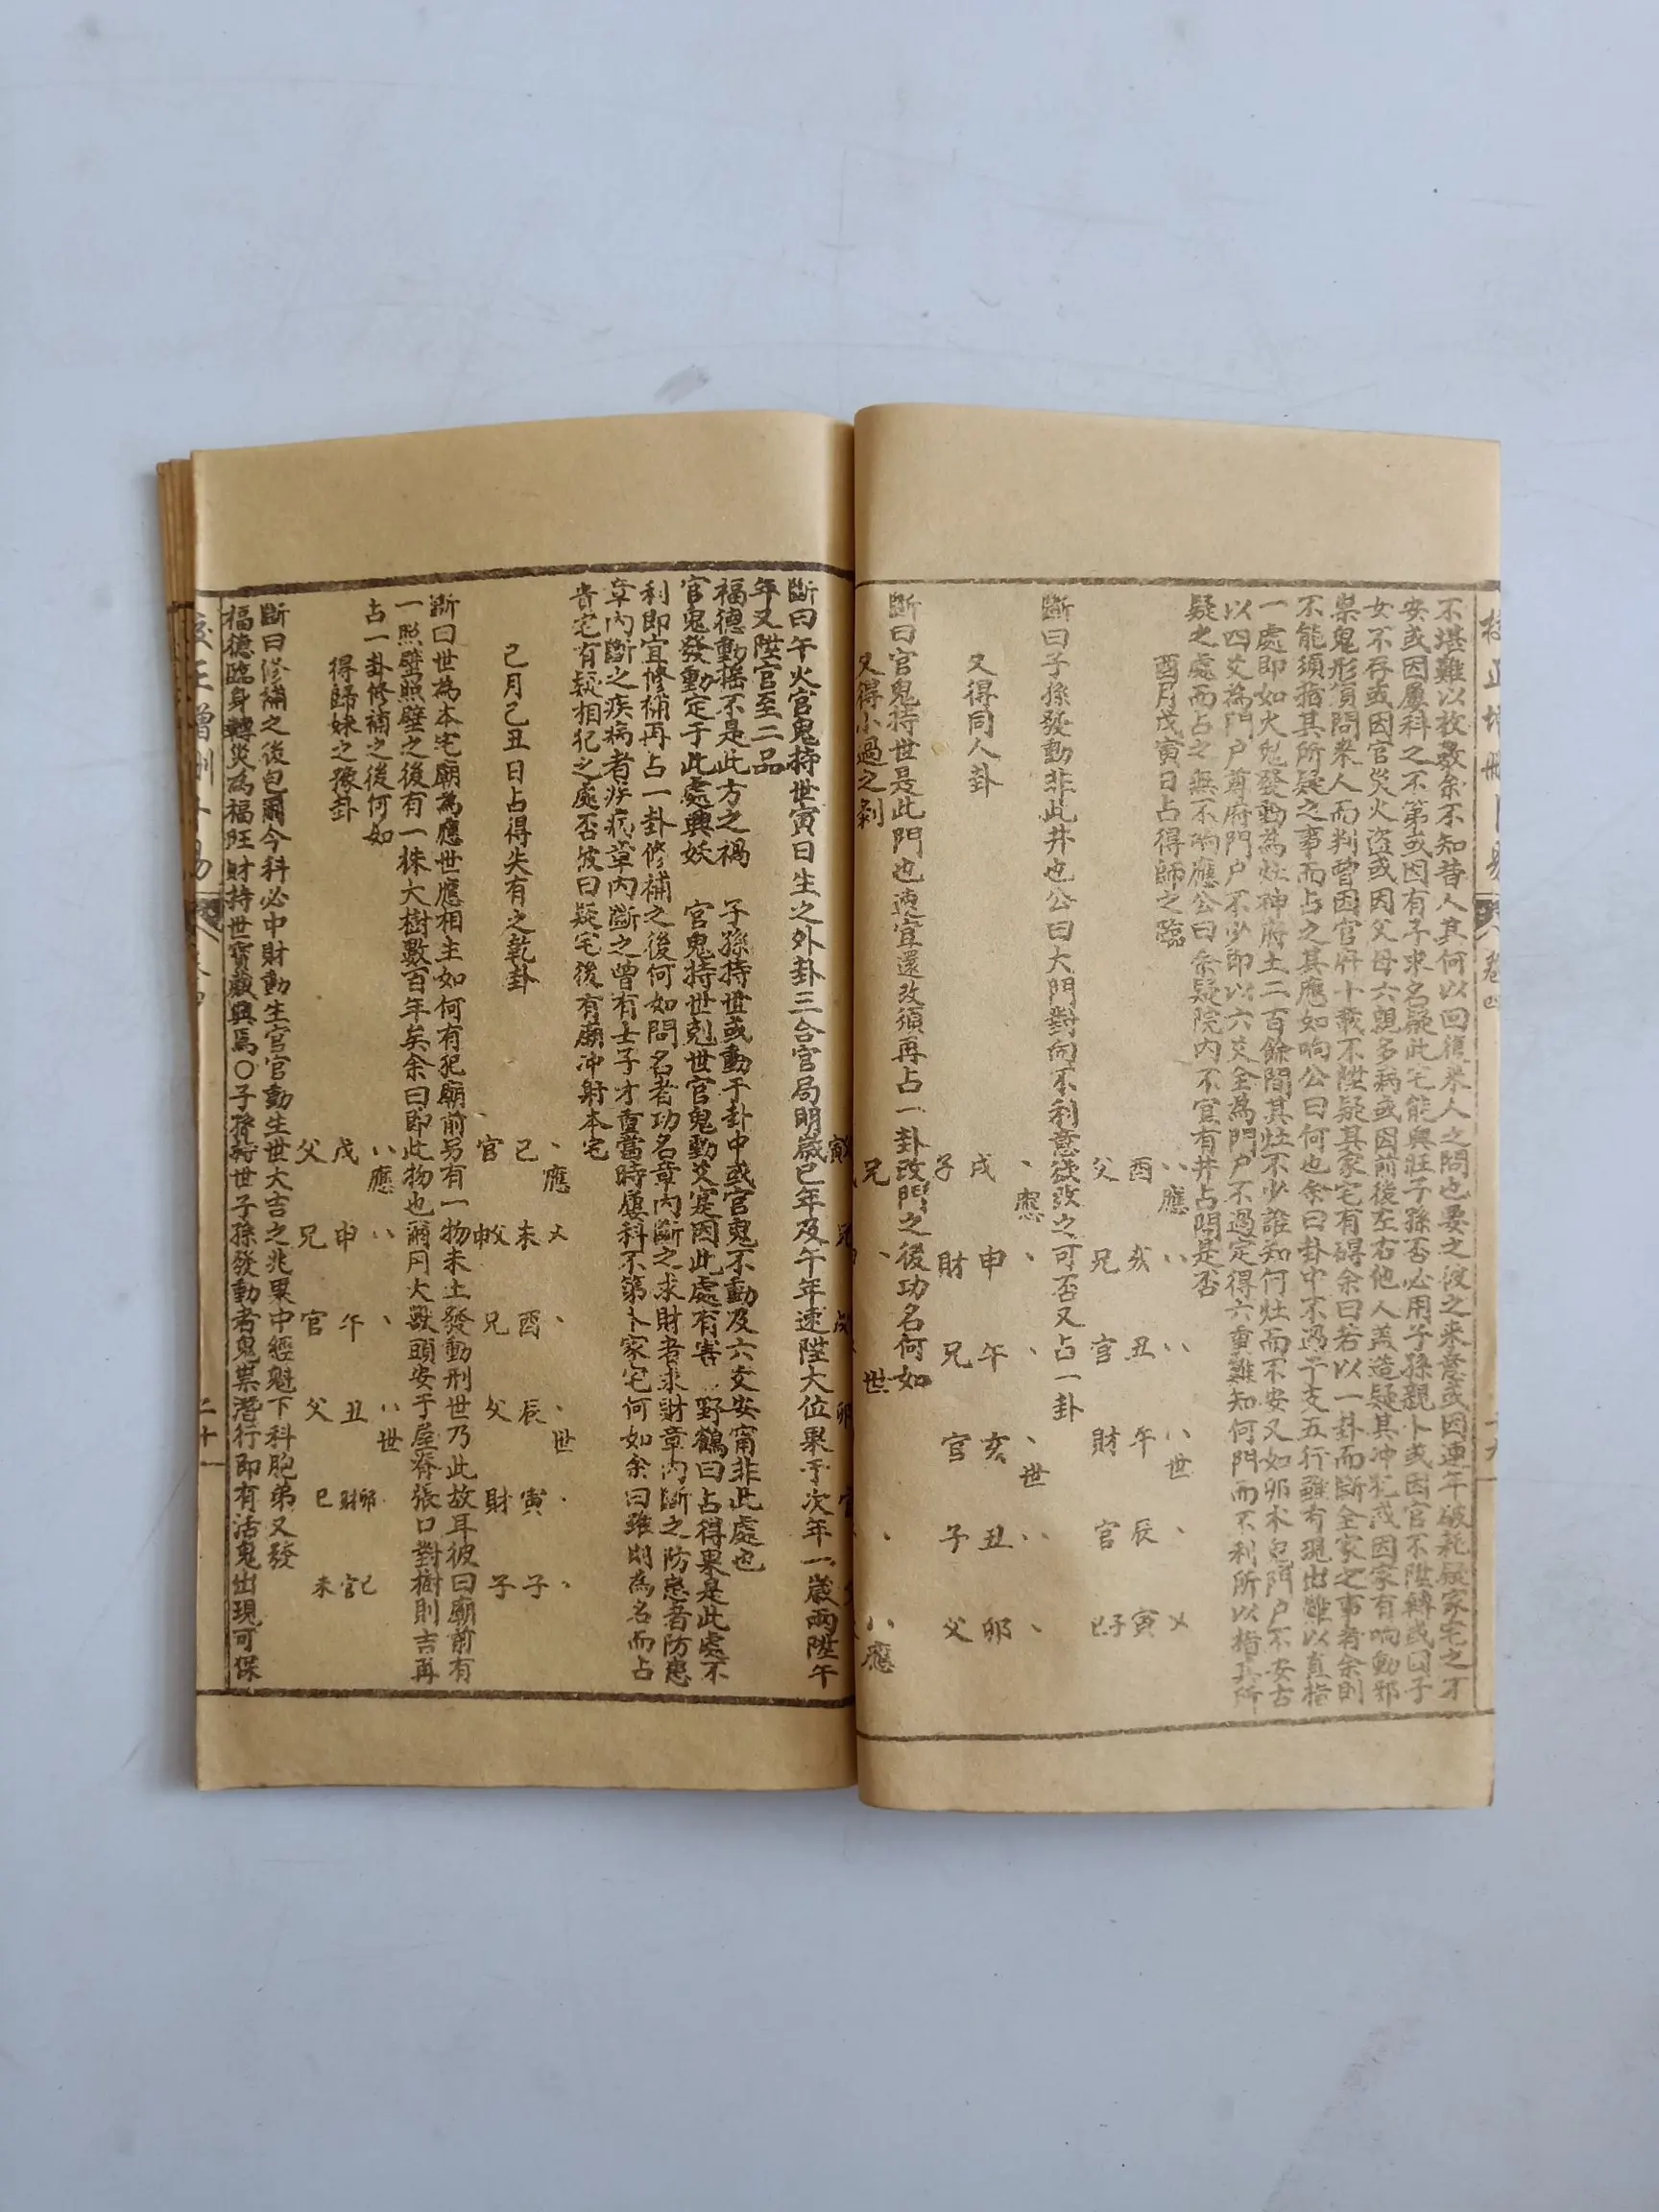 不堪難以枚數余不知昔人其何以回復來人之問也要之彼之來意或因連年破耗疑家宅之不
安或因屢科之不第或因有子求名疑此宅能興旺子孫否必用子孫親卜或因官不陞轉或因子
女不存或因官災火盜或因父母六親多病或因前後左右他人蓋造疑其冲犯或因家有响動邪
祟鬼形質問來人而判曾因官府十載不陞疑其家宅有碍余曰若以一卦而斷全家之事者余則
不能須指其所疑之事而占之其應如响公曰何也余曰卦中不過干支五行雖有現出難以直指
一處即如火鬼發動為灶神府土二百餘間其灶不少誰知何灶而不安又如卯木鬼門戶不安古
以四爻為門戶尊府門戶不少即以六爻全為門戶不過定得六重難知何門而不利所以指其所
疑之處而占之無不响應公曰余疑院內不宜有井占問是否
酉月戊寅日占得師之臨
父酉八應
兄亥八
官丑八
財午八世
官辰、
巳子寅乂
斷曰子孫發動非此井也公曰大門對向不利意欲改之可否又占一卦
又得同人卦
子戌、應
財申、
兄午、
官亥、世
子丑八
父卯、
斷曰官鬼持世是此門也速宜還改須再占一卦改門之後功名何如
又得小過之剥
斷曰午火官鬼持世寅日生之外卦三合官局明歲巳年及午年速陞大位果于次年一歲兩陞午
年又陞官至二品
福德動搖不是此方之禍 子孫持世或動于卦中或官鬼不動及六爻安甯非此處也
官鬼發動定于此處興妖 官鬼持世剋世官鬼動爻寔因此處有害 野鶴曰占得果是此處不
利即宜修補再占一卦修補之後何如問名者功名章內斷之求財者求財章內斷之防患者防患
章內斷之疾病者疾病章內斷之曾有士子才重當時屢科不第卜家宅何如余曰雖則為名而占
貴宅有疑相犯之處否彼曰疑宅後有廟冲射本宅
己月己丑日占得夬有之乾卦
官巳、應
申父未乂
兄酉、
父辰、世
財寅、
子子、
斷曰世為本宅廟為應世應相生如何有犯廟前另有一物未土發動刑世乃此故耳彼曰廟前有
一照壁照壁之後有一株大樹數百年矣余曰即此物也爾用大獸頭安于屋脊張口對樹則吉再
占一卦修補之後何如
得歸妹之豫卦
父戌八應
兄申八
官午、
父丑八世
巳財卯
未官巳
斷曰修補之後包爾今科必中財動生官官動生世大吉之兆果中經魁下科胞弟又發
福德臨身轉災為福旺財持世寶藏興焉○子孫持世子孫發動者鬼祟潛行即有活鬼出現可保
二十一